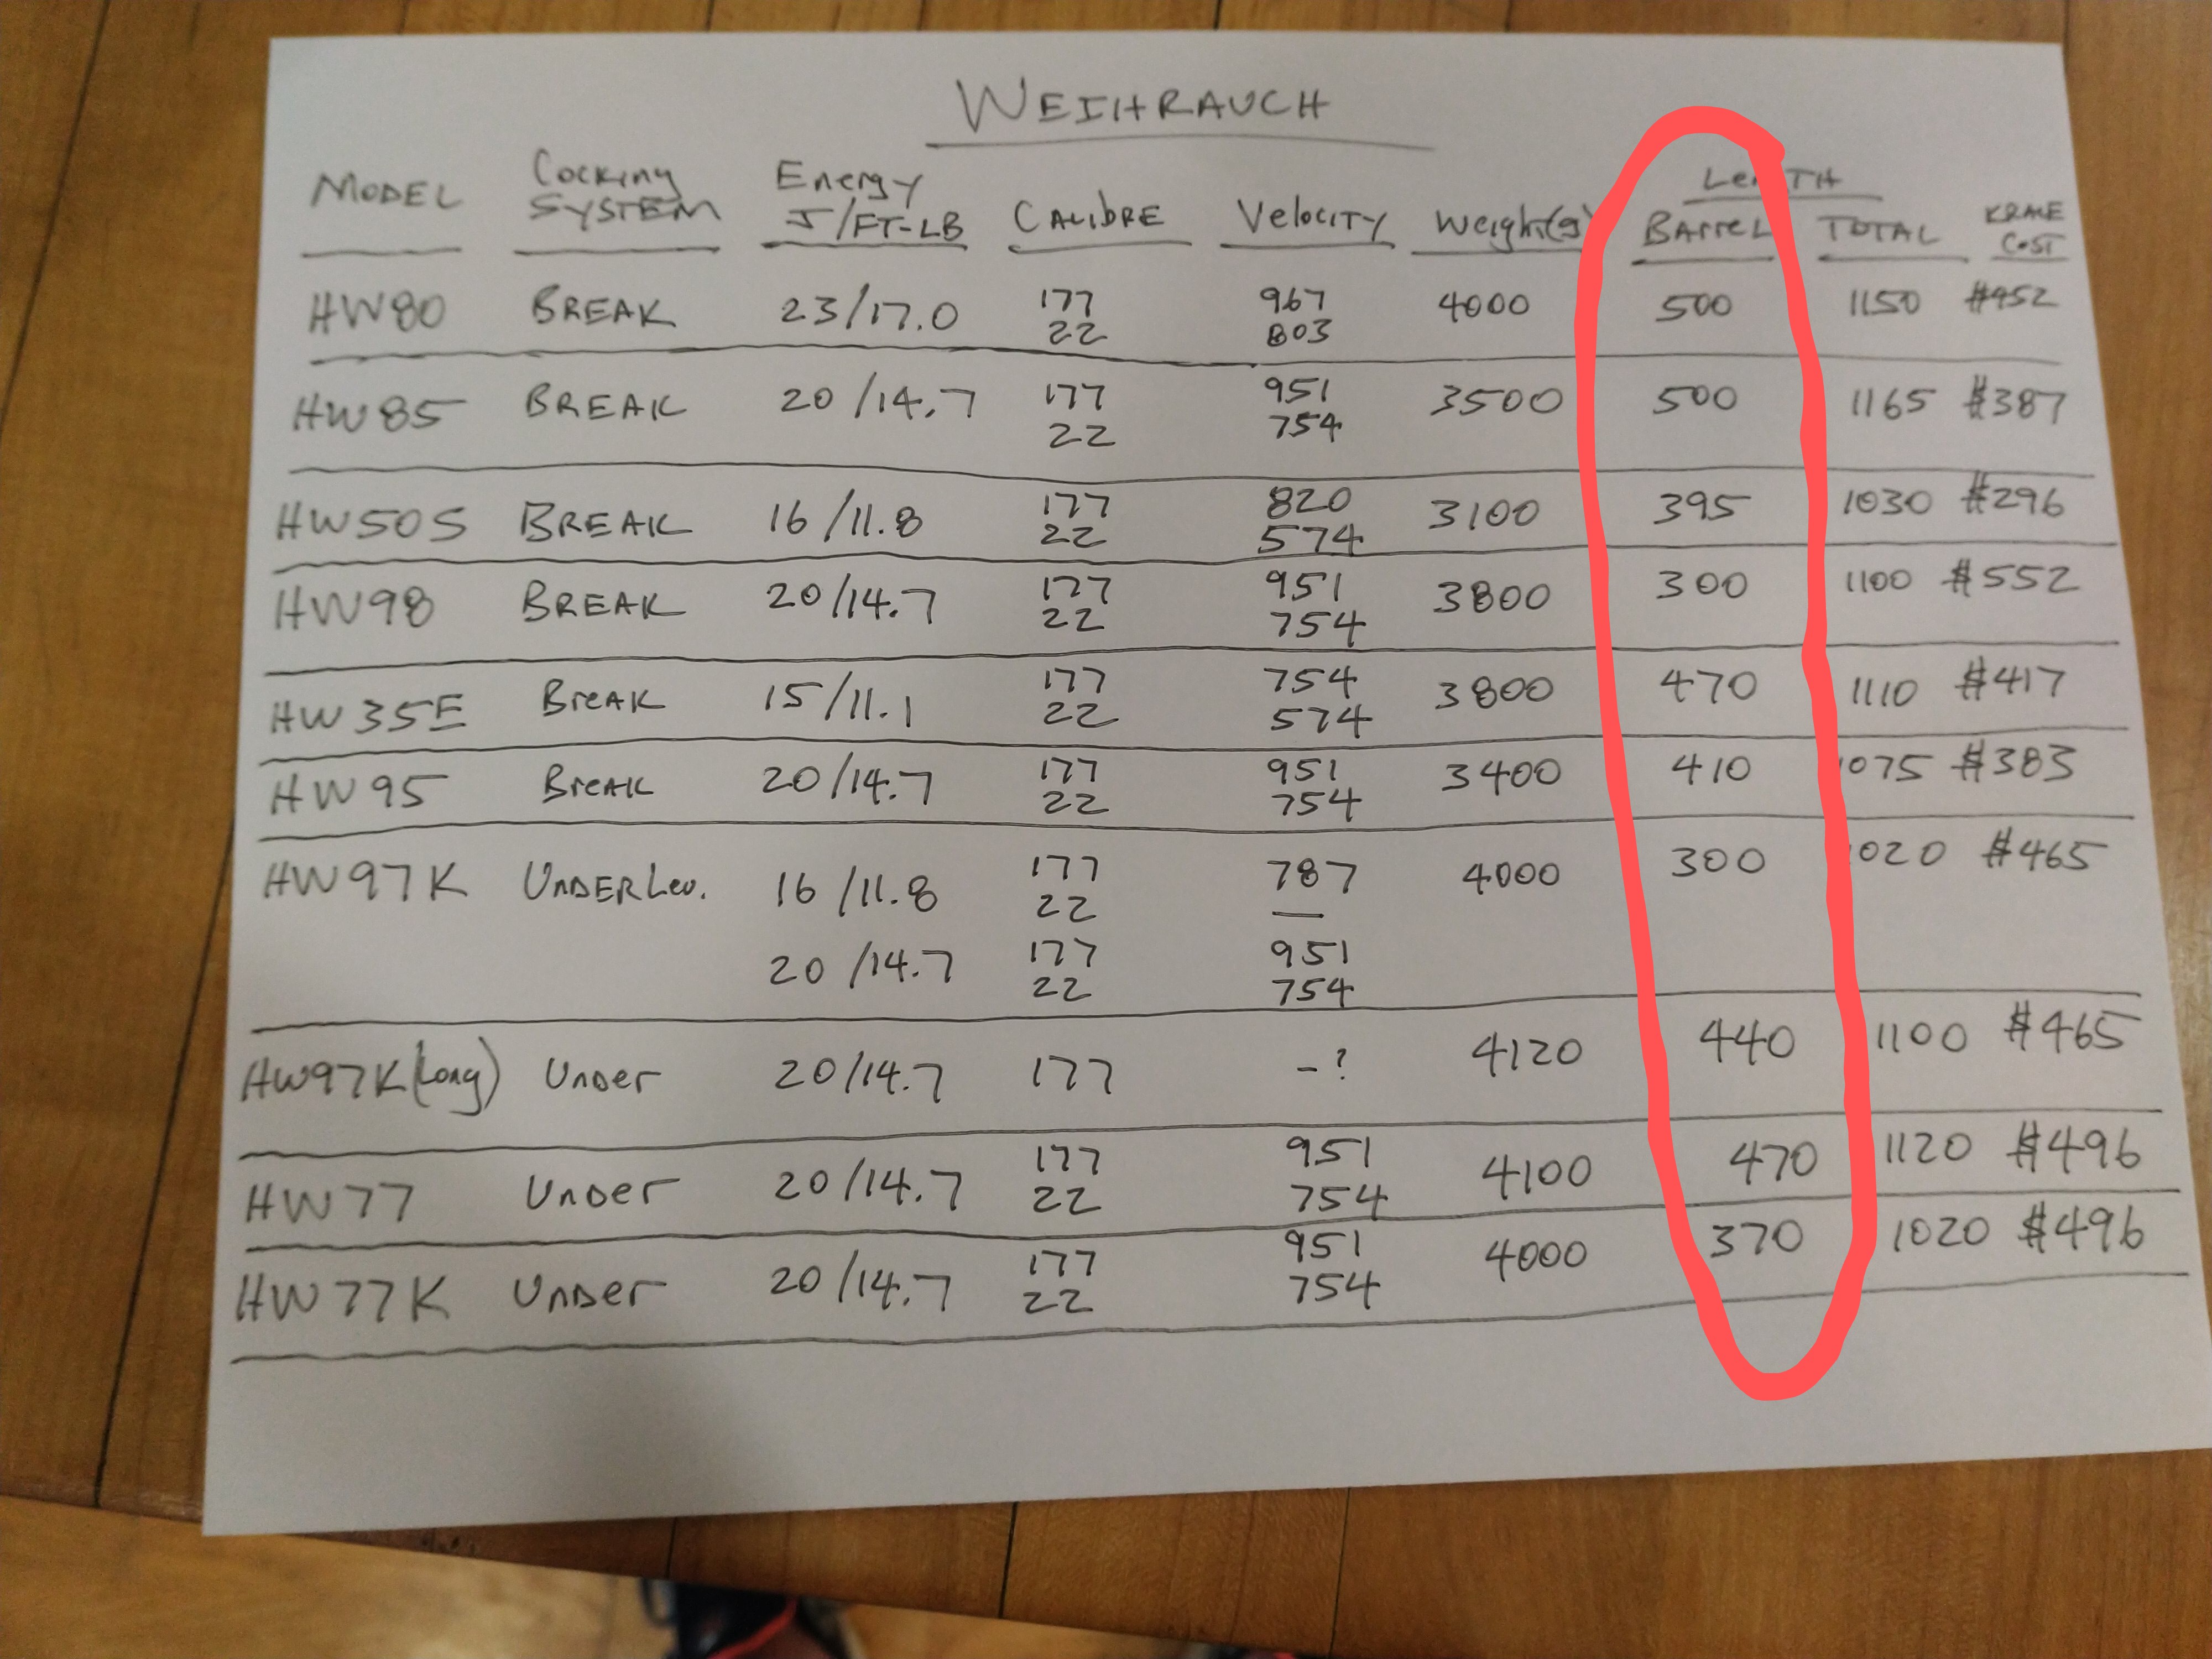 WEIHRAUCH
MODEL Cocking SYSTEM Energy J/FT-LB CALIBRE Velocity Weight(g) LENGTH BArreL TOTAL KRALE COST
HW80 BREAK 23/17.0 177 967 4000 500 1150 $452
22 803
HW85 BREAK 20/14.7 177 951 3500 500 1165 $387
22 754
HW50S BREAK 16/11.8 177 820 3100 395 1030 $296
22 574
HW98 BREAK 20/14.7 177 951 3800 300 1100 $552
22 754
HW35E BreAK 15/11.1 177 754 3800 470 1110 $417
22 574
HW95 BreAK 20/14.7 177 951 3400 410 1075 $383
22 754
HW97K UNDERLev. 16/11.8 177 787 4000 300 1020 $465
22 —
20/14.7 177 951
22 754
HW97K(Long) Under 20/14.7 177 -? 4120 440 1100 $465
HW77 Under 20/14.7 177 951 4100 470 1120 $496
22 754
HW77K Under 20/14.7 177 951 4000 370 1020 $496
22 754